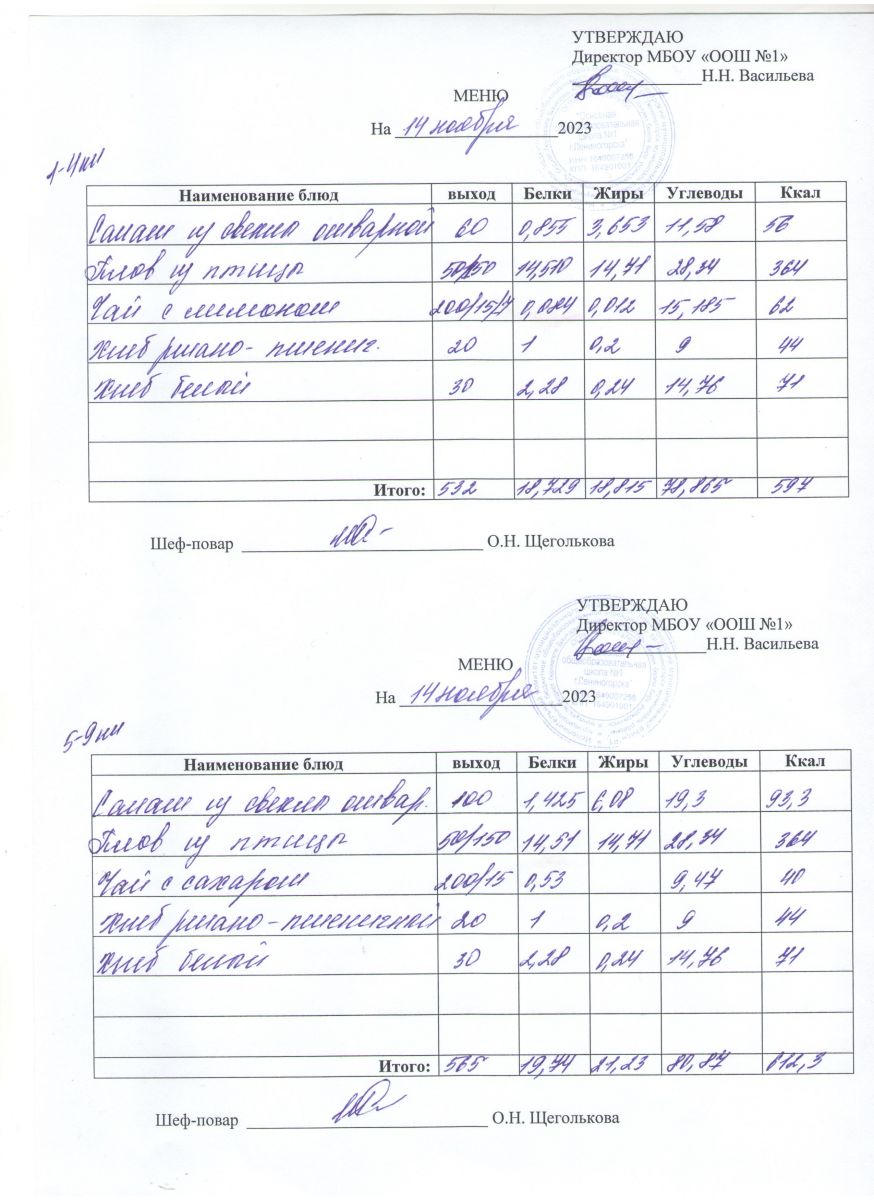 УТВЕРЖДАЮ
Директор МБОУ «ООШ №1»
Н.Н. Васильева
МЕНЮ
На 14 ноября 2023
1-4 кл
Наименование блюд выход Белки Жиры Углеводы Ккал
Салат из свеклы отварной 60 0,855 3,653 11,58 56
Плов из птицы 50/150 14,510 14,71 28,34 364
Чай с лимоном 200/15/7 0,084 0,012 15,185 62
Хлеб ржано-пшенич. 20 1 0,2 9 44
Хлеб белый 30 2,28 0,24 14,76 71
Итого: 532 18,729 18,815 78,865 597
Шеф-повар О.Н. Щеголькова
УТВЕРЖДАЮ
Директор МБОУ «ООШ №1»
Н.Н. Васильева
общеобразовательная
школа №1
г.Лениногорска"
МЕНЮ
На 14 ноября 2023
5-9 кл
Наименование блюд выход Белки Жиры Углеводы Ккал
Салат из свеклы отвар. 100 1,425 6,08 19,3 93,3
Плов из птицы 50/150 14,51 14,71 28,34 364
Чай с сахаром 200/15 0,53 9,47 40
Хлеб ржано-пшеничной 20 1 0,2 9 44
Хлеб белой 30 2,28 0,24 14,76 71
Итого: 565 19,74 21,23 80,87 612,3
Шеф-повар О.Н. Щеголькова